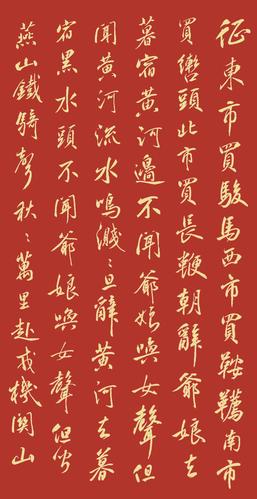 征東市買駿馬西市買鞍韉南市
買轡頭北市買長鞭朝辭爺娘去
暮宿黄河邊不聞爺娘喚女聲但
聞黄河流水鳴濺〻旦辭黄河去暮
宿黑水頭不聞爺娘喚女聲但聞
燕山鐵騎聲秋〻萬里赴戎機関山